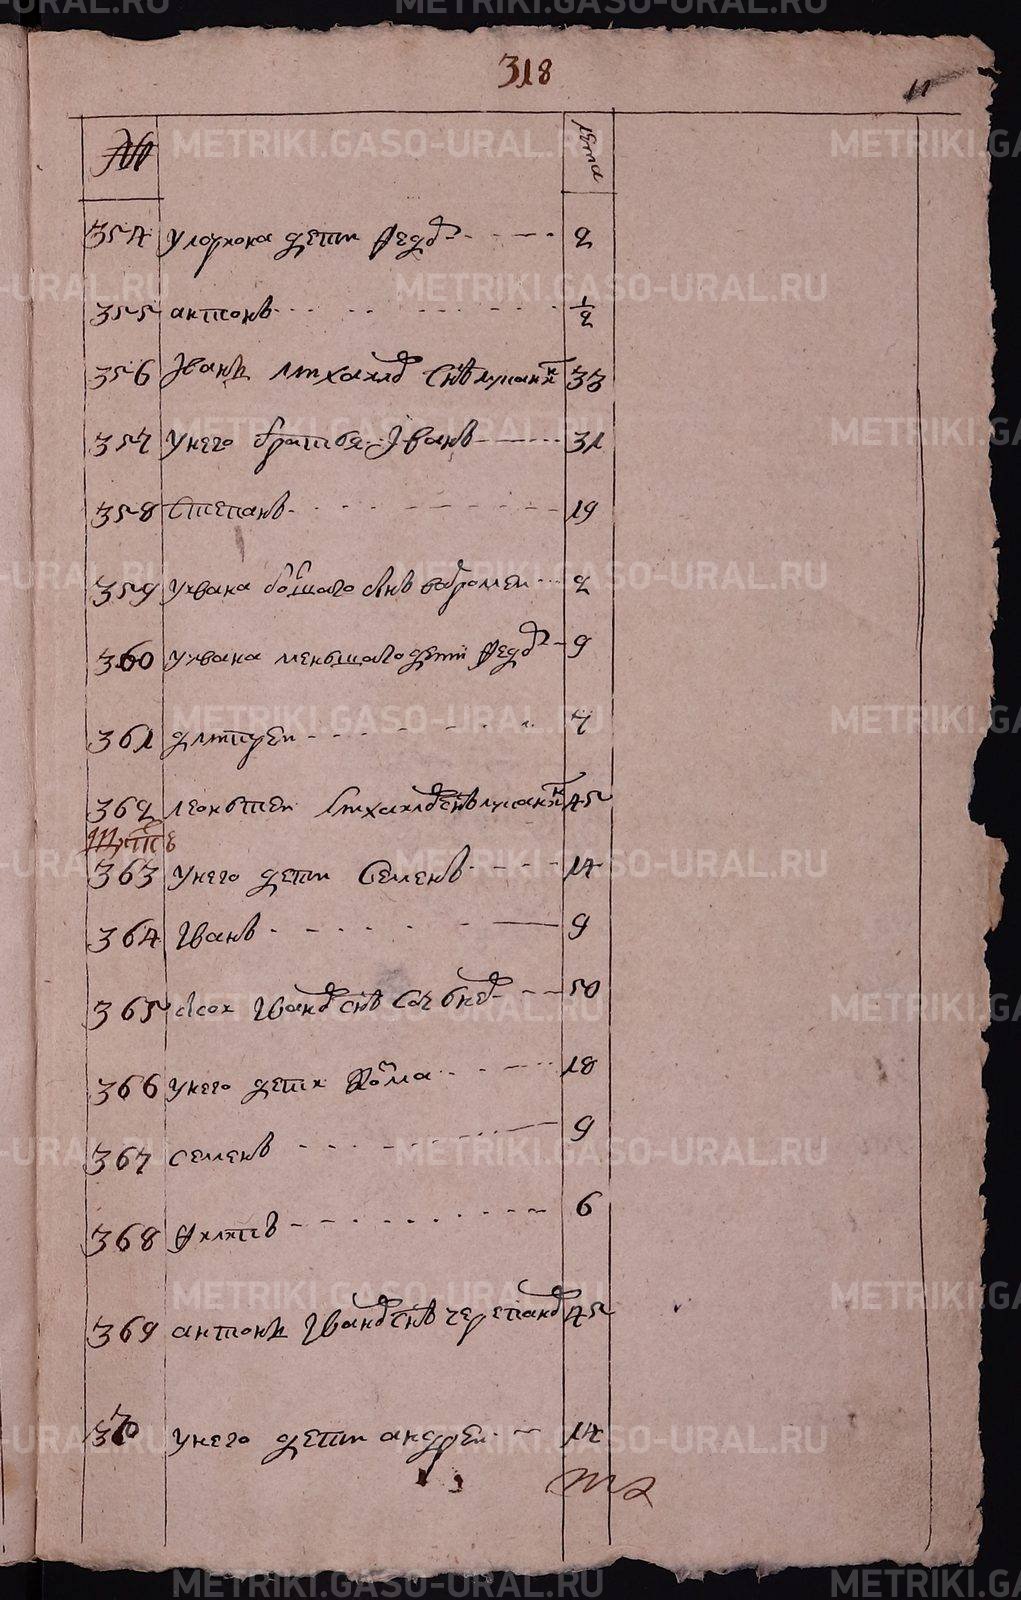 318
11
№ лета
354 У лариона дети Федор 2
355 антонъ 1/2
356 Iванъ михаилов снъ лупанин 33
357 У него братья Iванъ 31
358 Степанъ 19
359 У ивана болшаго снъ ефромеи 2
360 У ивана меньшаго дети Федор 9
361 дмитреи 7
362 леонътеи михаилов снъ лупанин 45
363 У него дети Семенъ 14
364 Иванъ 9
365 Иванов снъ 50
366 У него дети Фома 18
367 семенъ 9
368 Филипъ 6
369 антонъ Иванов снъ черепанов 45
370 У него дети андреи 14
METRIKI.GASO-URAL.RU